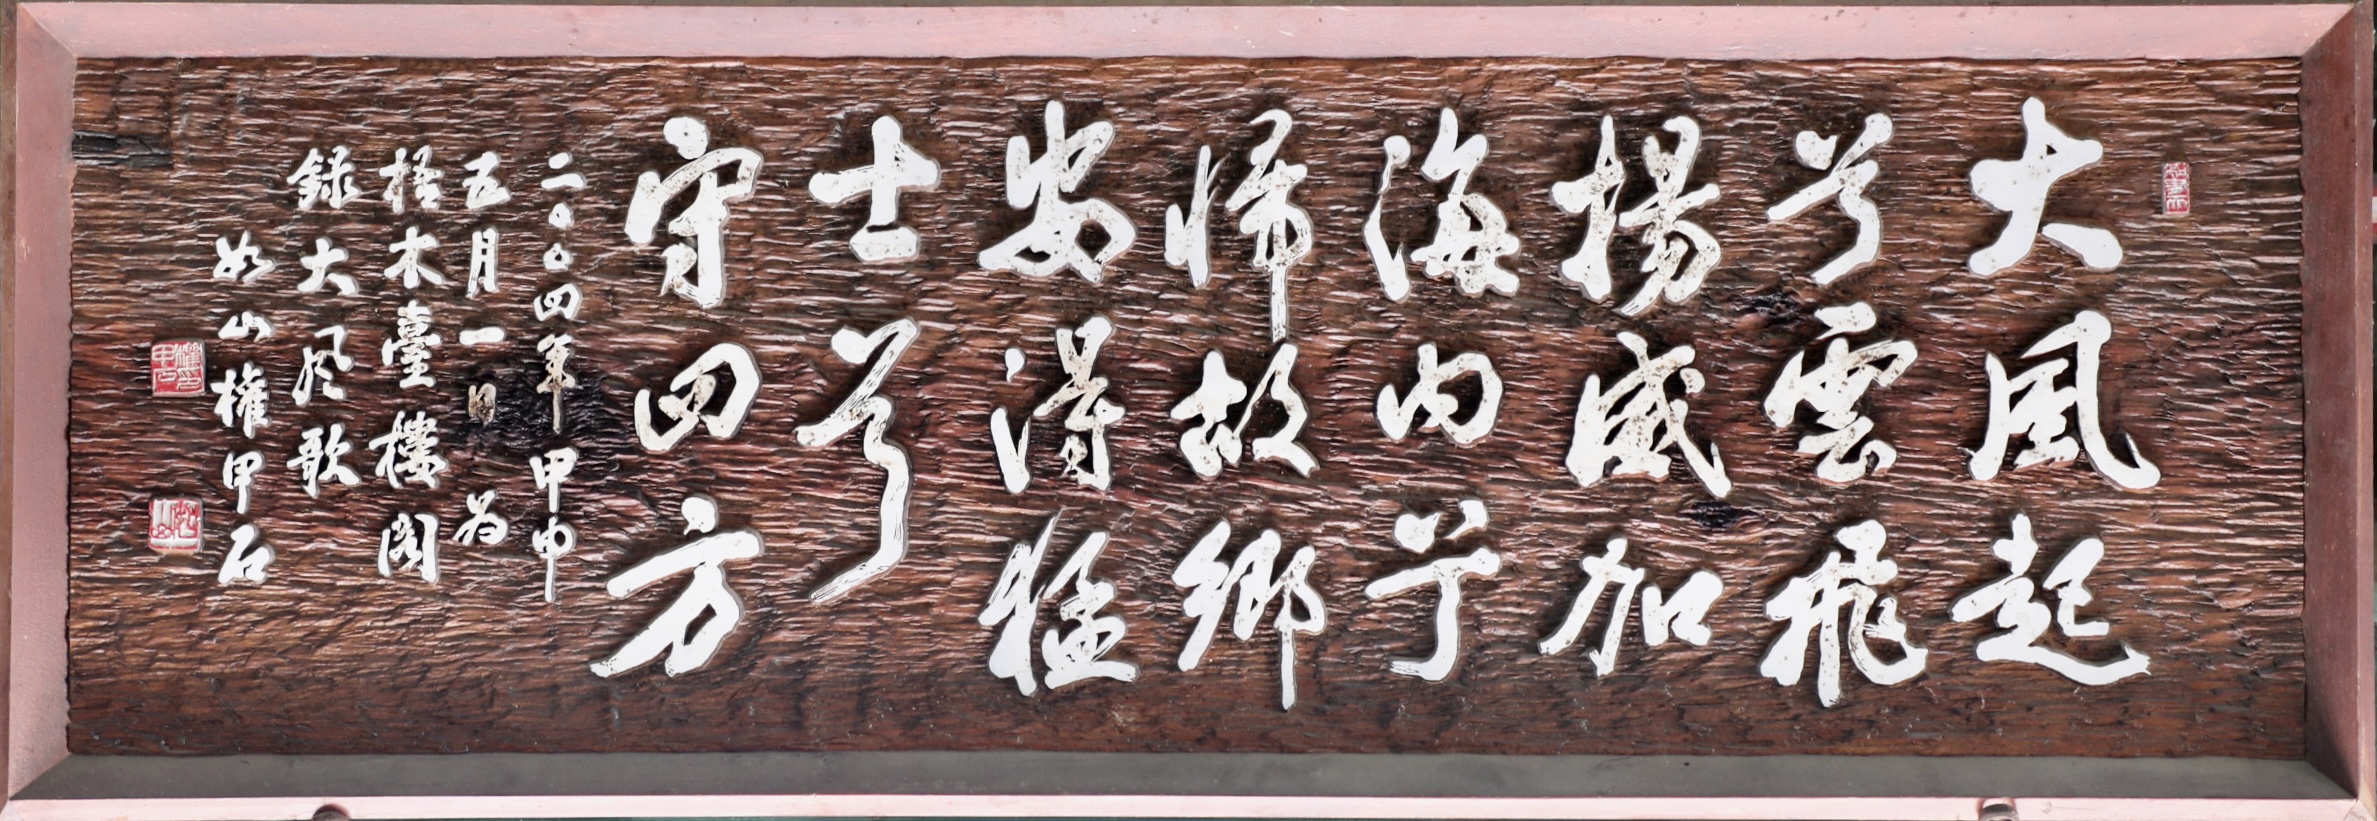 大風起
兮雲飛
揚威加
海内兮
歸故鄉
安得猛
士兮
守四方
二〇〇四年甲申
五月一日為
梧木臺樓閣
錄大風歌
如山權甲石